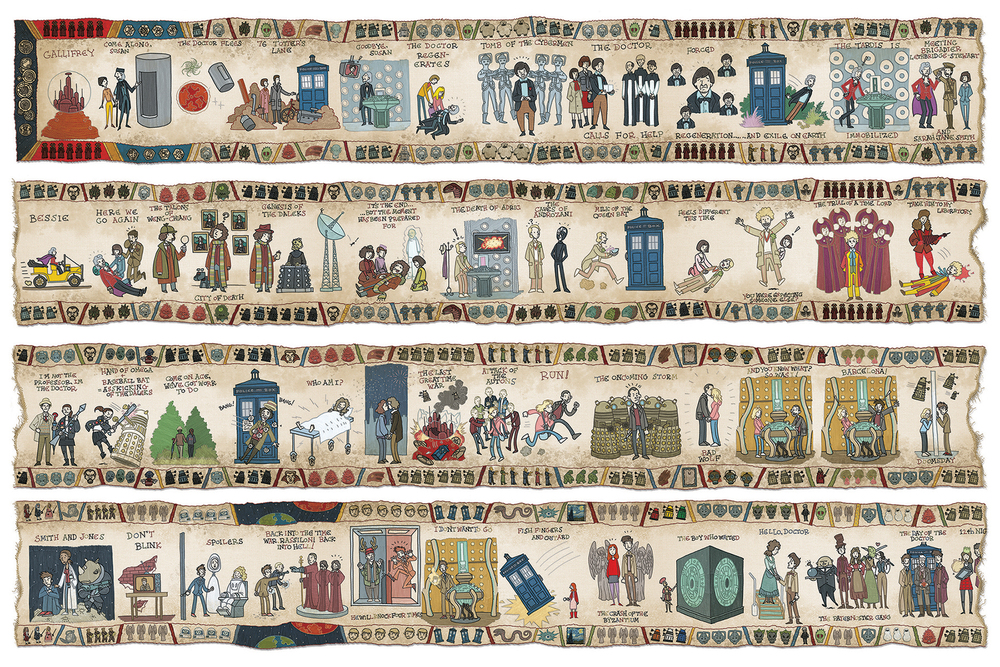 GALLIFREY
COME ALONG,
SUSAN
THE DOCTOR FLEES
76 TOTTER'S
LANE
GOODBYE,
SUSAN
THE DOCTOR
REGEN-
ERATES
TOMB OF THE CYBERMEN
THE DOCTOR
CALLS FOR HELP
FORCED
REGENERATION.....AND EXILE ON EARTH
THE TARDIS IS
IMMOBILIZED
MEETING
BRIGADIER
LETHBRIDGE-STEWART
AND
SARAH JANE SMITH
BESSIE
HERE WE
GO AGAIN
THE TALONS
OF
WENG-CHIANG
CITY OF DEATH
GENESIS OF
THE DALEKS
IT'S THE END...
BUT THE MOMENT
HAS BEEN PREPARED
FOR
THE DEATH OF ADRIC
THE
CAVES OF
ANDROZANI
MILK OF THE
QUEEN BAT
FEELS DIFFERENT
THIS TIME
THE TRIAL OF A TIME LORD
TAKE HIM TO MY
LABORATORY
I'M NOT THE
PROFESSOR, I'M
THE DOCTOR
HAND OF OMEGA
+
BASEBALL BAT
= ASSKICKING
OF THE DALEKS
COME ON ACE,
WE'VE GOT WORK
TO DO
POLICE BOX
BANG!
BANG!
WHO AM I?
THE LAST
GREAT TIME
WAR
ATTACK OF
THE
AUTONS
RUN!
THE ONCOMING STORM
BAD
WOLF
AND YOU KNOW WHAT?
SO WAS I!
BARCELONA!
DOOMSDAY
SMITH AND JONES
DON'T
BLINK
SPOILERS
BACK INTO THE TIME
WAR, RASSILON! BACK
INTO HELL!
HE WILL KNOCK FOUR TIMES
I DON'T WANT TO GO
FISH FINGERS
AND CUSTARD
THE CRASH OF THE
BYZANTIUM
THE BOY WHO WAITED
HELLO, DOCTOR
THE PATERNOSTER GANG
THE DAY OF THE
DOCTOR
12th NIG